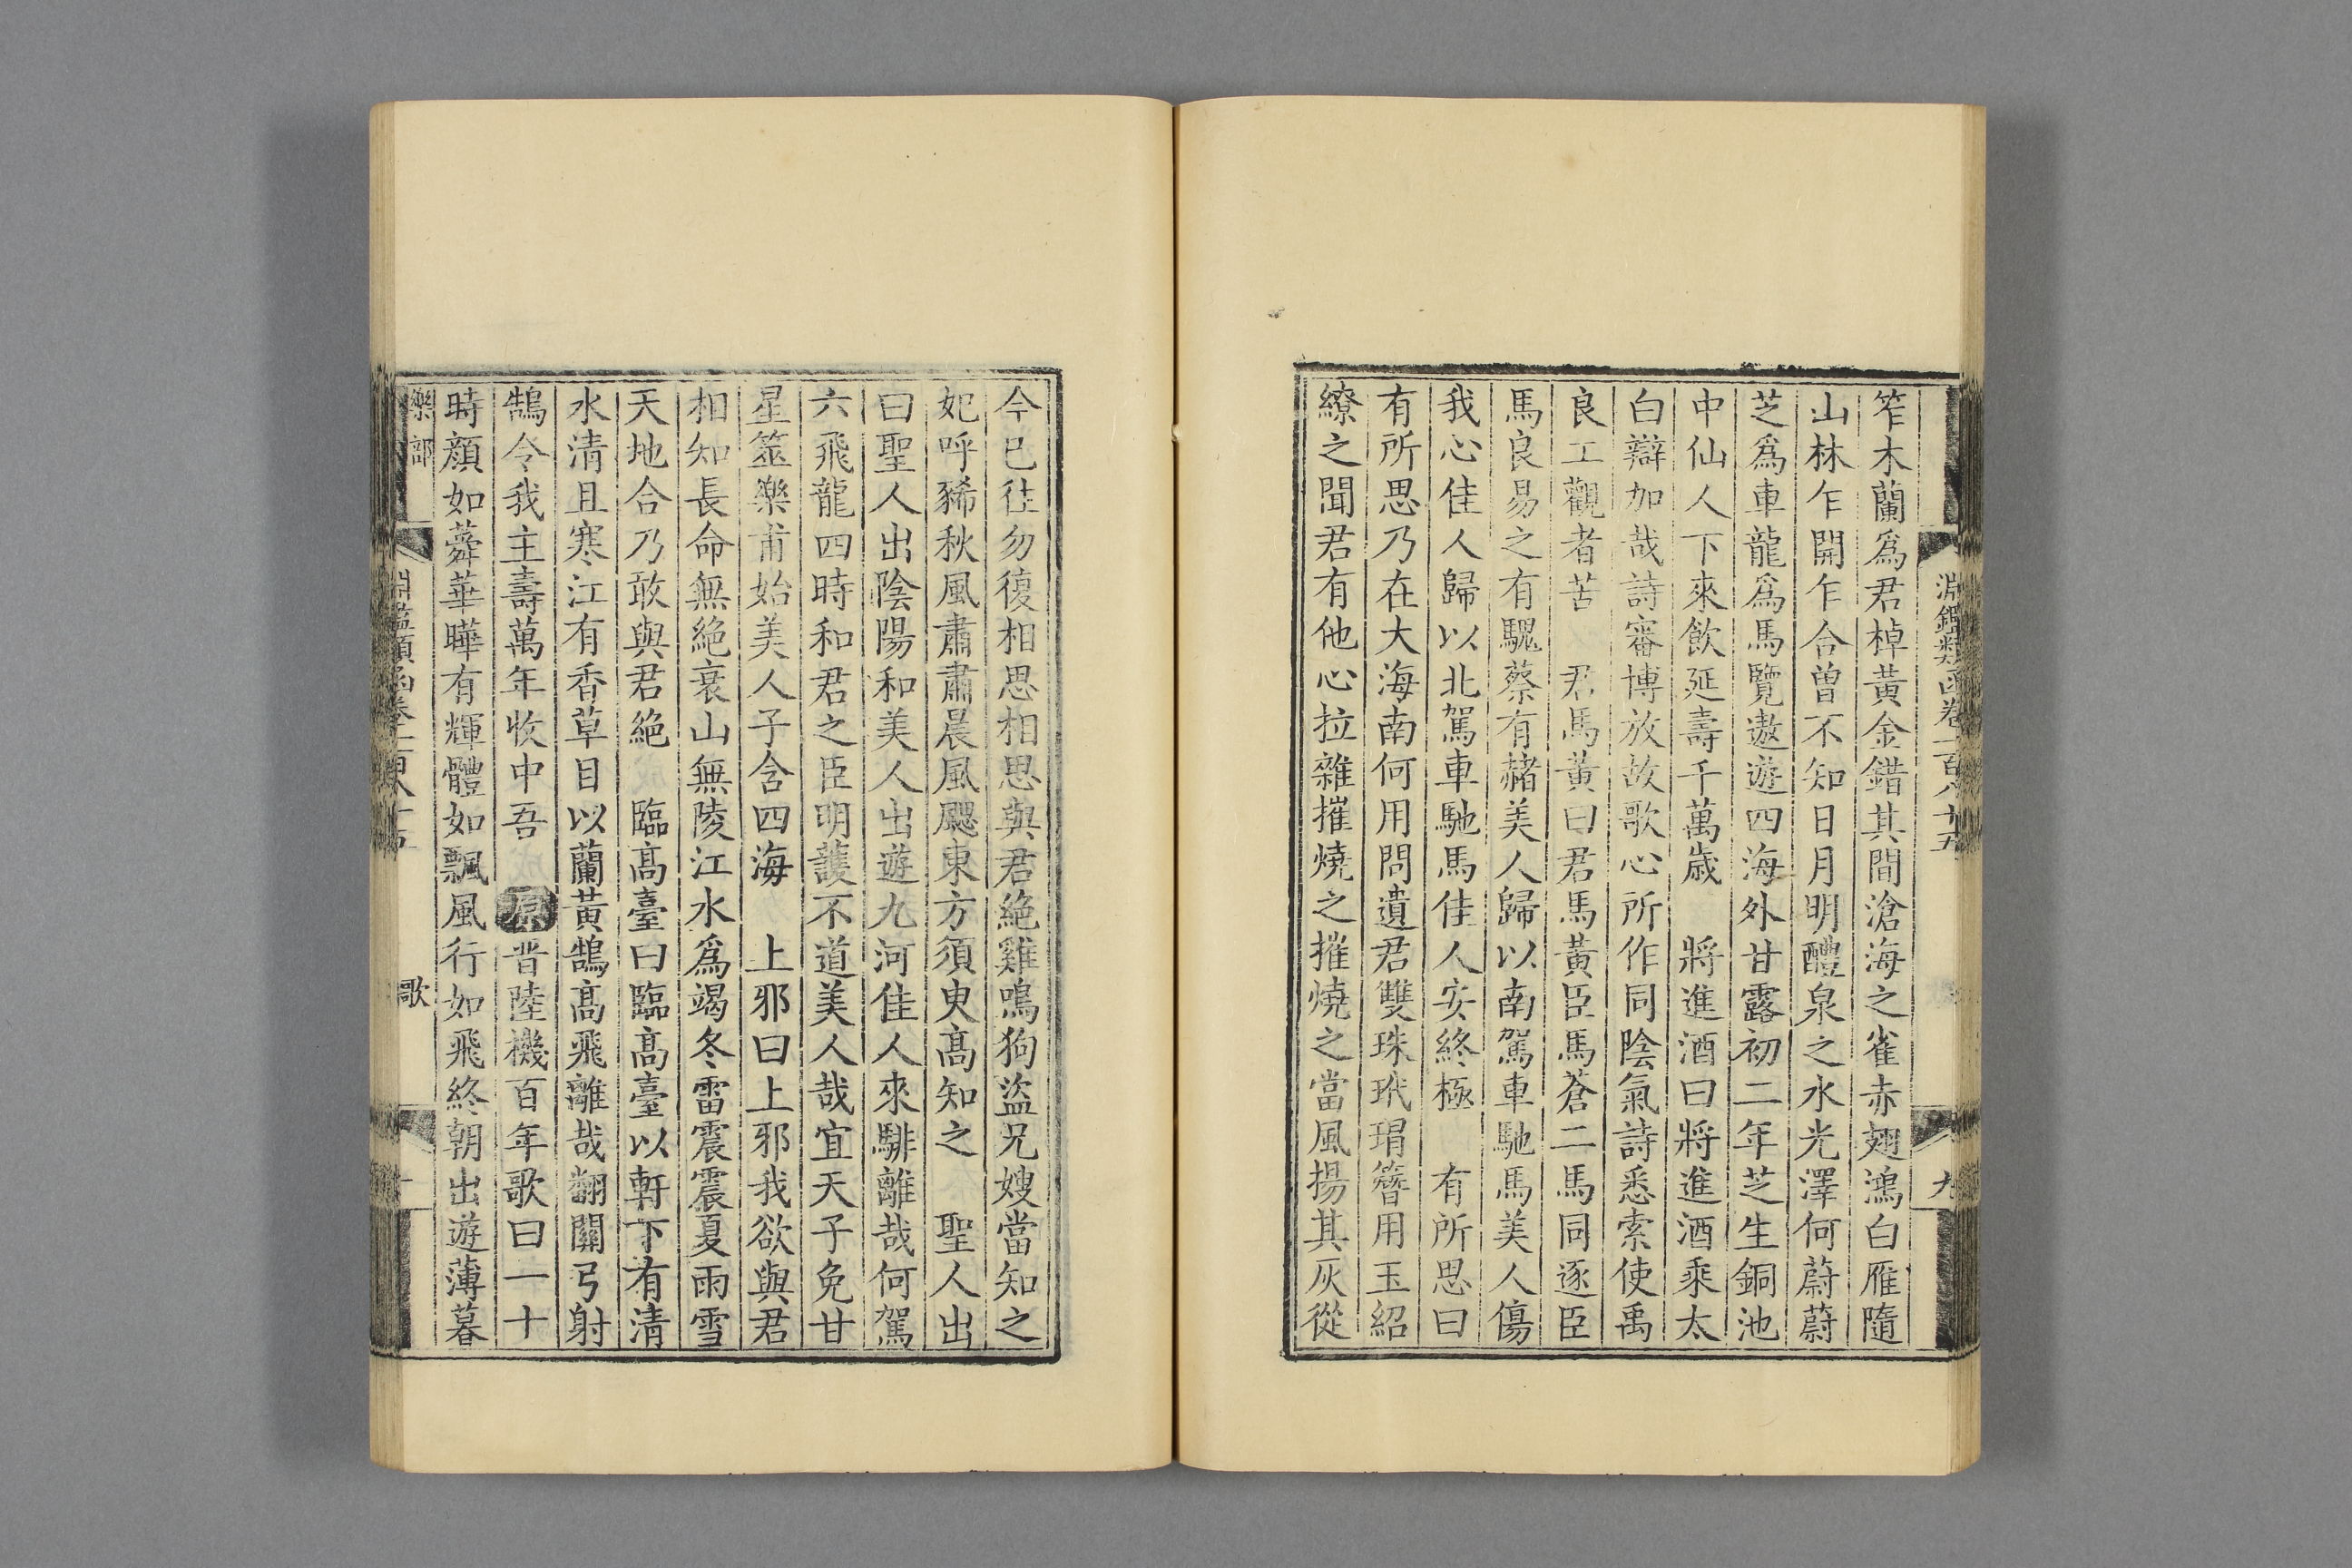 淵鑑類函卷一百八十五
九
笮木蘭爲君棹黃金錯其間滄海之雀赤翅鴻白雁隨
山林乍乍開乍合曾不知日月明醴泉之水光澤何蔚蔚
芝爲車龍爲馬覽遨遊四海外甘露初二年芝生銅池
中仙人下來飮延壽千萬歳　將進酒曰將進酒乘太
白辯加哉詩審博放故歌心所作同陰氣詩悉索使禹
良工觀者苦　君馬黃曰君馬黃臣馬蒼二馬同逐臣
馬良易之有騩蔡有赭美人歸以南駕車馳馬美人傷
我心佳人歸以北駕車馳馬佳人安終極　有所思曰
有所思乃在大海南何用問遺君雙珠玳瑁簪用玉紹
繚之聞君有他心拉雜摧燒之摧燒之當風揚其灰從
今已往勿復相思相思與君絶雞鳴狗盜兄嫂當知之
妃呼豨秋風肅肅晨風颸東方須臾髙知之　聖人出
曰聖人出陰陽和美人出遊九河佳人來騑離哉何駕
六飛龍四時和君之臣明護不道美人哉宜天子免甘
星筮樂甫始美人子含四海　上邪曰上邪我欲與君
相知長命無絶衰山無陵江水爲竭冬雷震震夏雨雪
天地合乃敢與君絶　臨髙臺曰臨髙臺以軒下有淸
水清且寒江有香草目以蘭黃鵠髙飛離哉翻關弓射
鵠令我主壽萬年收中吾　原晋陸機百年歌曰一十
時顏如蕣華曄有輝體如飄風行如飛終朝出遊薄暮
樂部
淵鑑類函卷一百八十五
歌